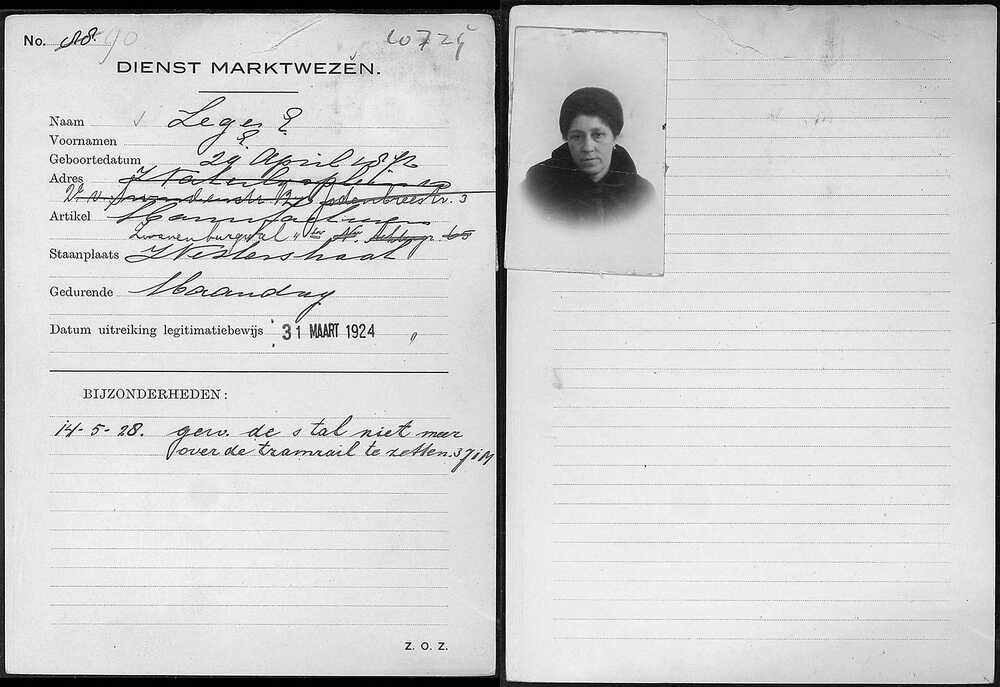 No. 88. 90 10725
DIENST MARKTWEZEN.
Naam Leger E
Voornamen E.
Geboortedatum 29 April 1872
Adres Waterlooplein
Jodenbreestr. 3
Artikel Manufacturen
Zwanenburgwal
Staanplaats Westerstraat
Gedurende Maandag
Datum uitreiking legitimatiebewijs 31 MAART 1924
BIJZONDERHEDEN:
14-5-28. gew. de stal niet meer
over de tramrail te zetten.
Z. O. Z.